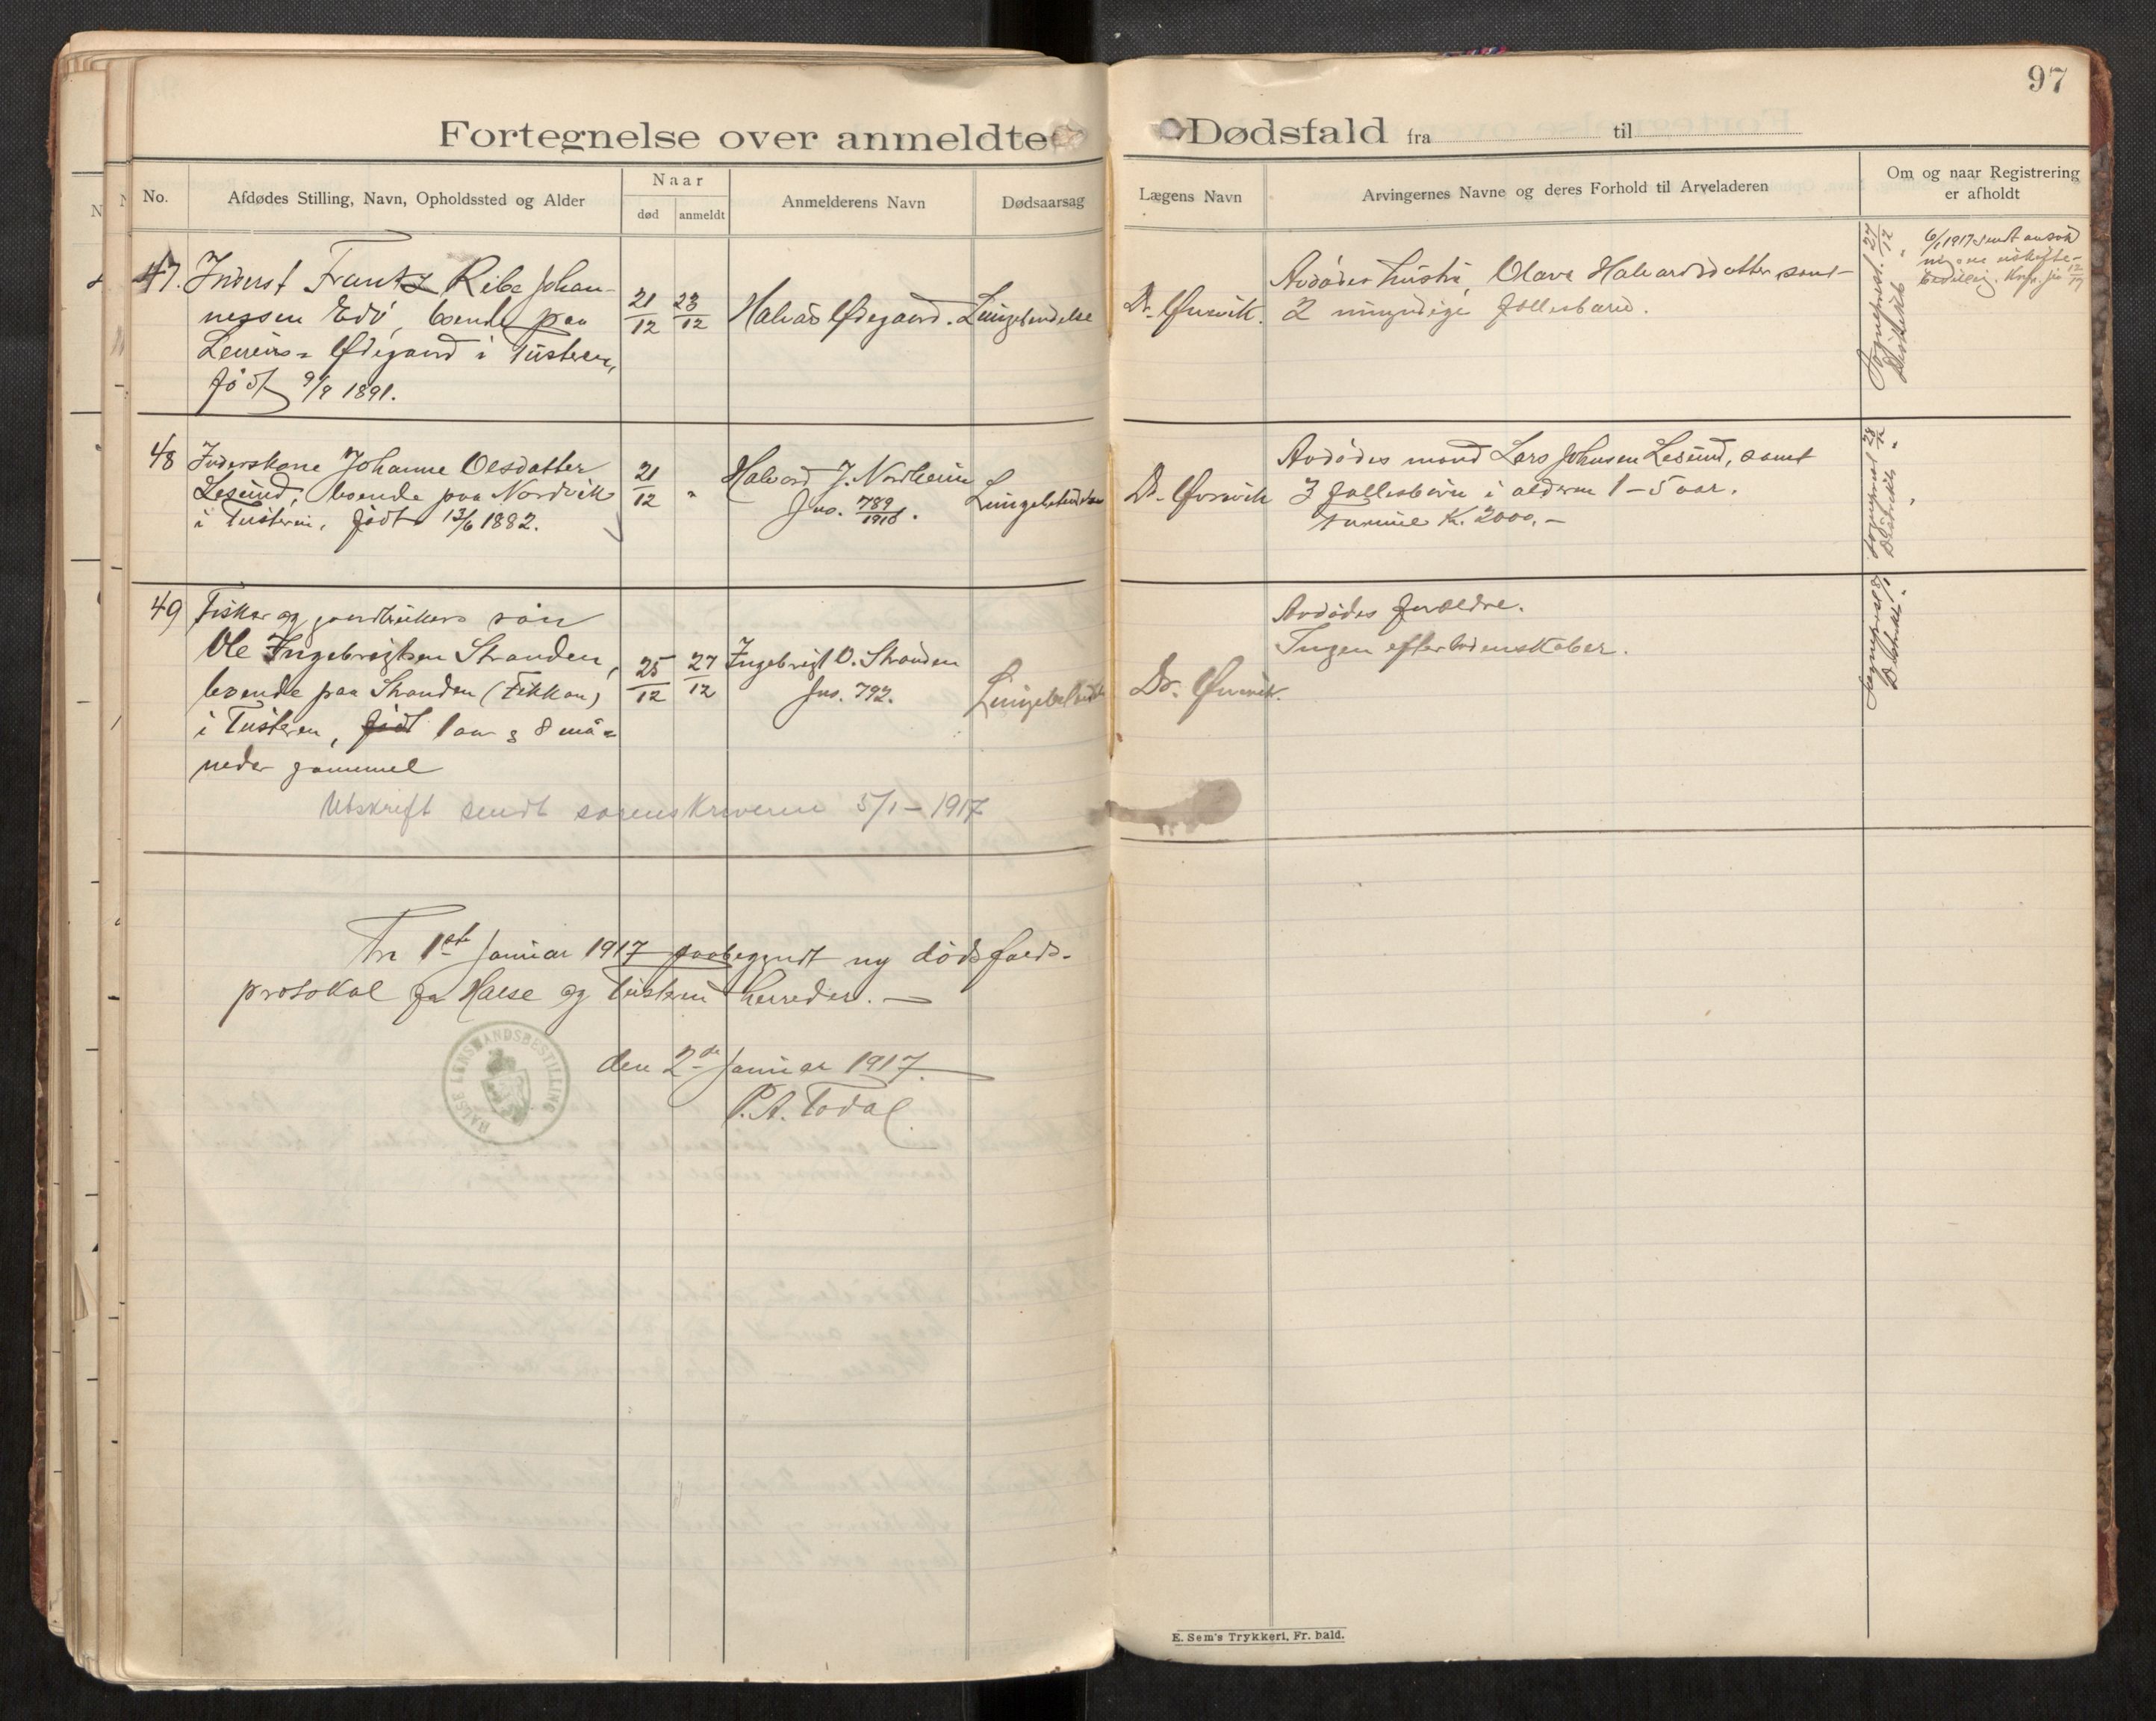 97
Fortegnelse over anmeldte Dødsfald fra til
No.
Afdødes Stilling, Navn, Opholdssted og Alder
Naar
død
anmeldt
Anmelderens Navn
Dødsaarsag
Lægens Navn
Arvingernes Navne og deres Forhold til Arveladeren
Om og naar Registrering
er afholdt
47. Inderst Frantz Ribe Johan-
nessen Edö, boende paa
Ødegaard i Tusteren,
født 9/9 1891.
21/12
23/12
Halvas Ødegaard.
Lungebetendelse
Dr. Øvrevik.
Avdødes hustru, Olava Halvardsdatter samt
2 umyndige fællesbarn.
Sogneprest. 27/12
Distrikts "
6/1 1917 sendt ansøk
ning om uskifte-
bevilling.
48 Inderskone Johanne Olsdatter
Lesund, boende paa Nordvik
i Tusteren, født 13/6 1882.
21/12
"
Halvard J. Nordheim
Jno. 789/1916.
Lungebetendelse
Dr. Øvrevik
Avdødes mand Lars Johnsen Lesund, samt
3 fællesbørn i alderen 1-5 aar.
Formue K. 2000.-
Sogneprest 28/12
Distrikts "
49 Fisker og gaardbrukers søn
Ole Ingebrigtsen Stranden,
boende paa Stranden (Fikkan)
i Tusteren, født 1 aar g 8 må=
neder gammel
25/12
27/12
Ingebrigt O. Stranden
Jno. 792.
Lungebetendelse
Dr. Øvrevik.
Avdødes forældre.
Ingen efterladenskaber.
Sogneprest
Distrikts "
Utskrift sendt sorenskriveren 5/1-1917
Fra 1ste Januar 1917 paabegyndt ny dødsfalds-
protokol for Halse og Tusteren herreder. —
den 2de Januar 1917.
P. A. Todal
HALSE LENSMANDSBESTILLING
E. Sem's Trykkeri, Fr. hald.